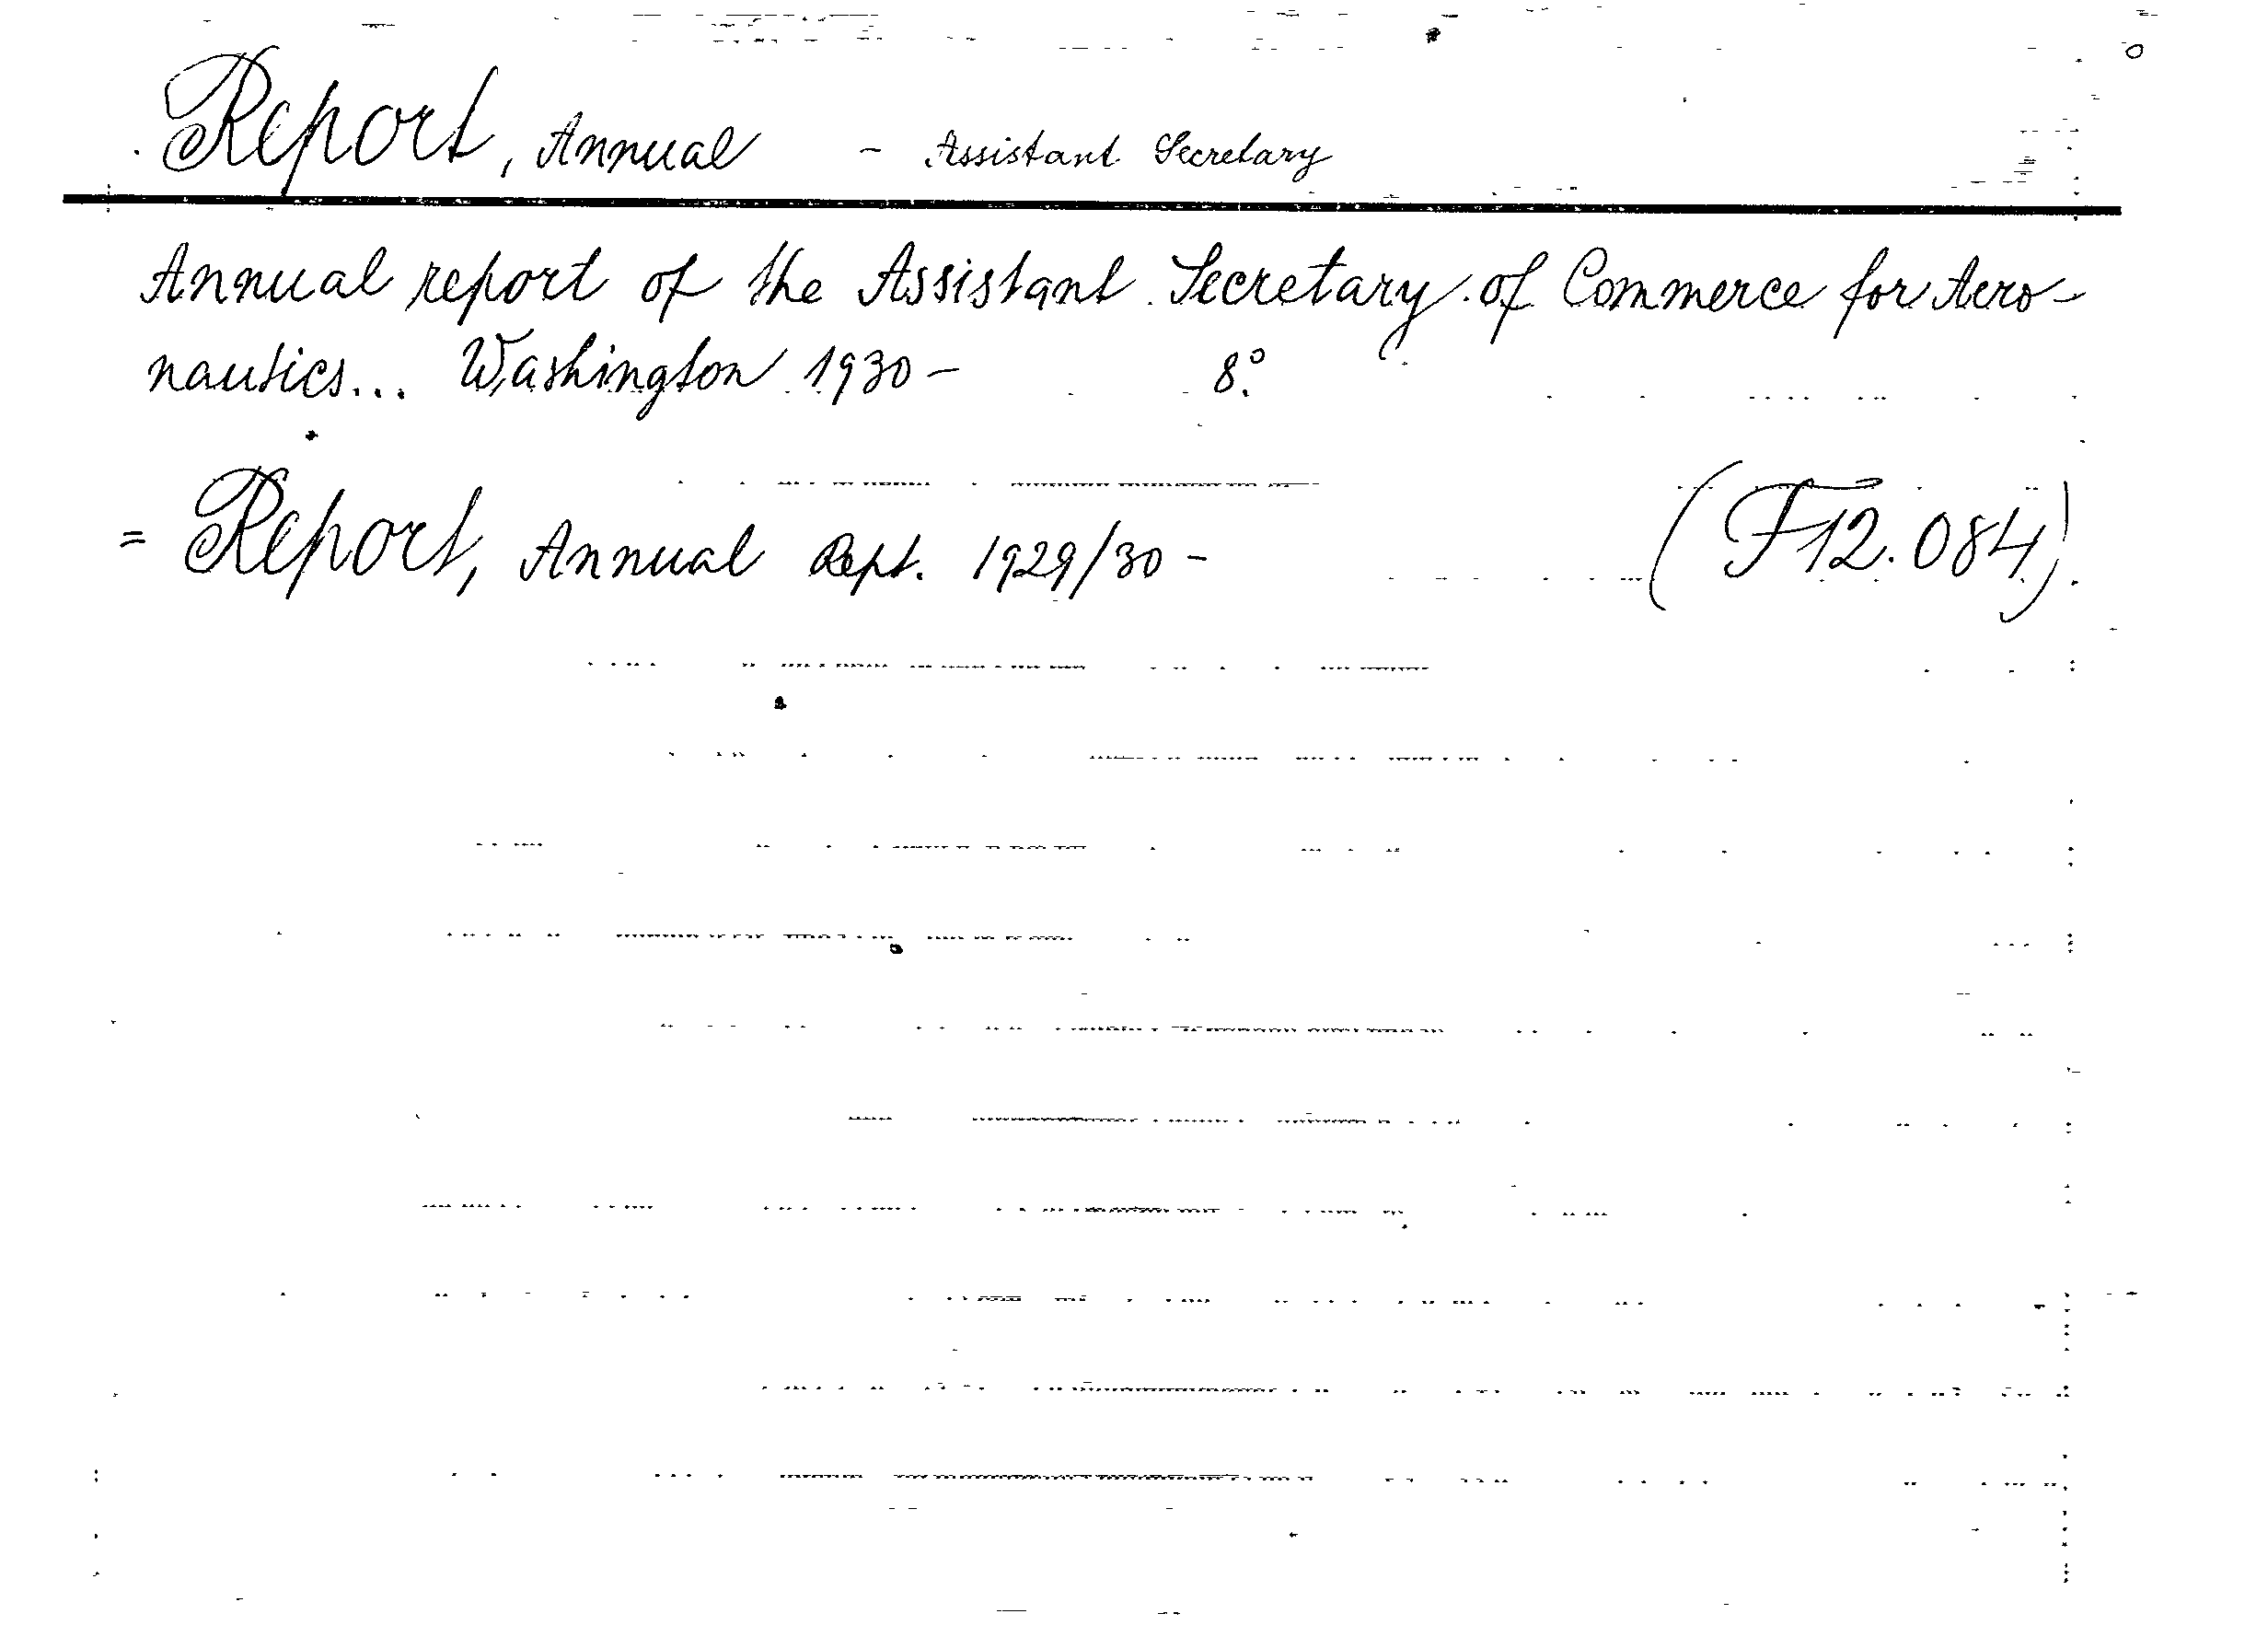 Report, Annual - Assistant Secretary
Annual report of the Assistant Secretary of Commerce for Aero-
nautics... Washington 1930- 8°.
= Report, Annual Dept. 1929/30- (F12.084).